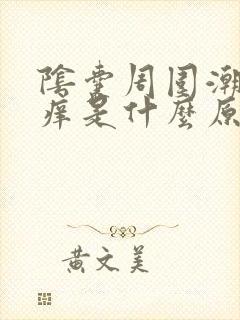 陰囊周围潮
痒是什麼原
黄文美